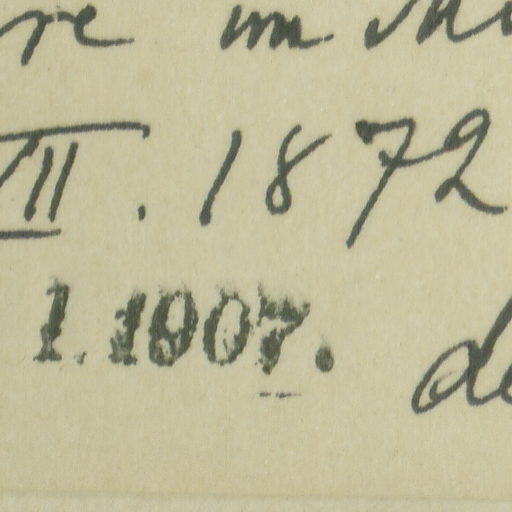 re im
VII. 1872
1.1907.
de